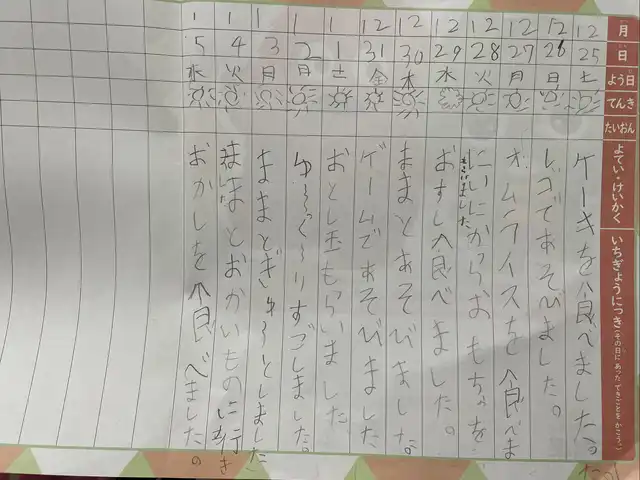 月
日
よう日
てんき
たいおん
よてい・けいかく
いちぎょうにっき(その日にあったできごとをかこう。)
12
25
土
ケーキを食べました。
12
26
日
レゴであそびました。
12
27
月
オムライスを食べました
12
28
火
にいにからおもちゃを
もらいました
12
29
水
おすし食べました。
12
30
木
ままとあそびました。
12
31
金
ゲームであそびました
1
1
土
おとし玉もらいました
1
2
日
ゆっくりすごしました。
1
3
月
ままとぎゅーとしました
1
4
火
ままとおかいものに行き
1
5
水
おかしを食べました。